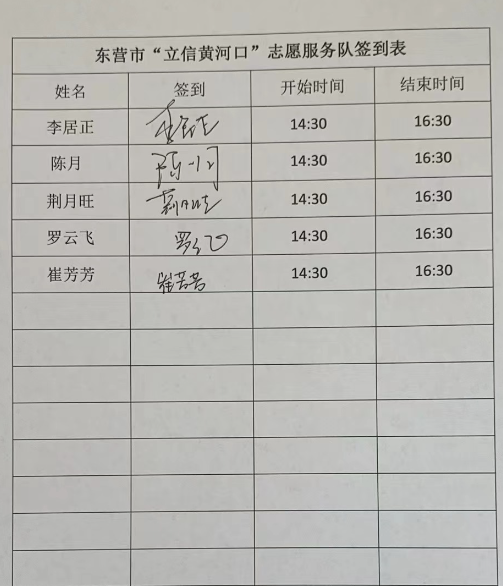 东营市“立信黄河口”志愿服务队签到表
姓名 签到 开始时间 结束时间
李居正 李居正 14:30 16:30
陈月 14:30 16:30
荆月旺 荆月旺 14:30 16:30
罗云飞 罗云飞 14:30 16:30
崔芳芳 崔芳芳 14:30 16:30